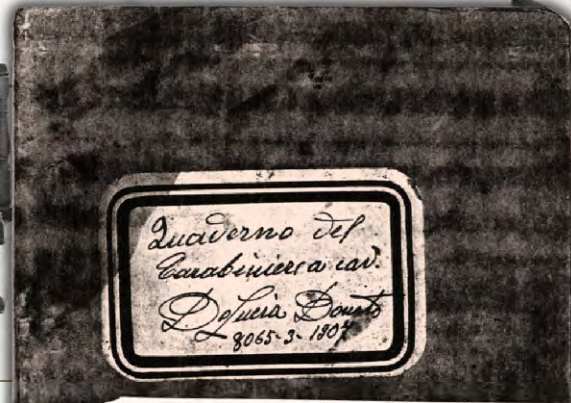 Quaderno del
Carabiniere a cav.
De Lucia Donato
8065-3-1907